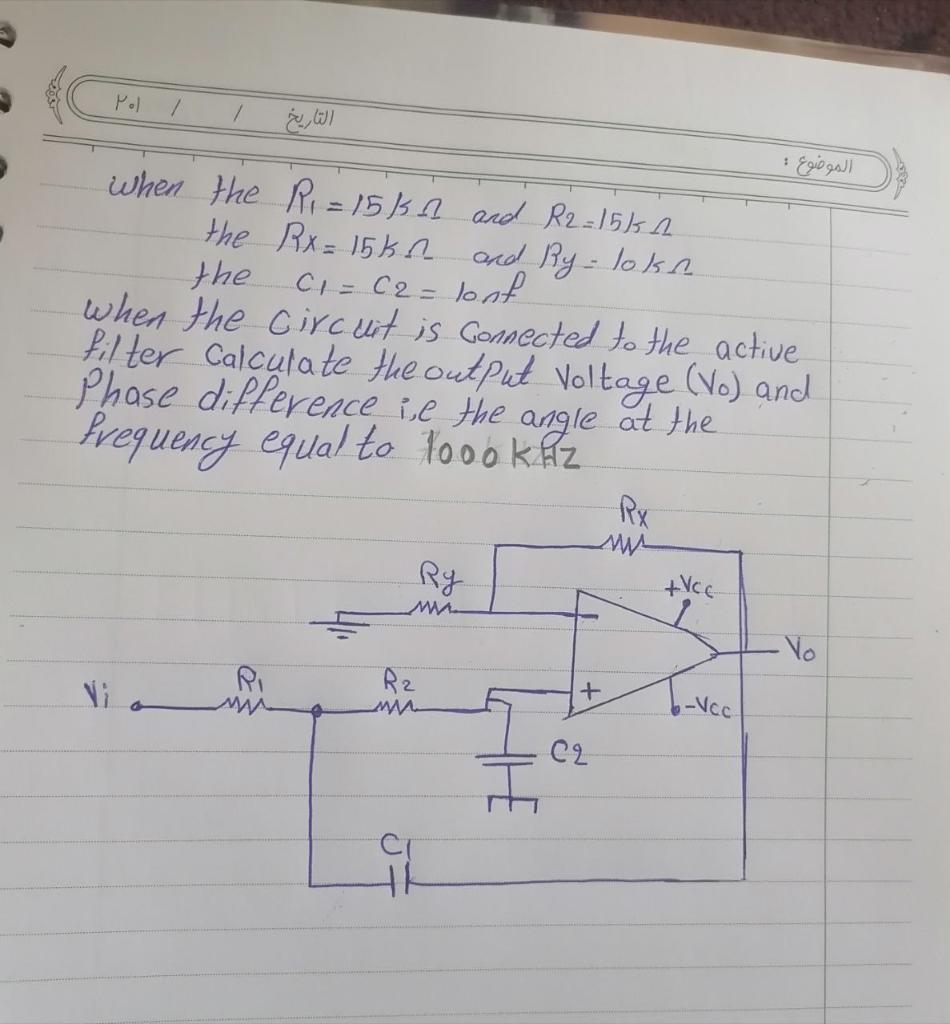 ٢٠١ / / التاريخ
الموضوع :
when the R1 = 15 kΩ and R2 = 15 kΩ
the Rx = 15 kΩ and Ry = 10 kΩ
the C1 = C2 = 10 nf
when the circuit is connected to the active
filter calculate the output voltage (Vo) and
Phase difference i,e the angle at the
frequency equal to 1000 kHz
Rx
Ry
+Vcc
-
Vo
Vi
R1
R2
+
-Vcc
C2
C1